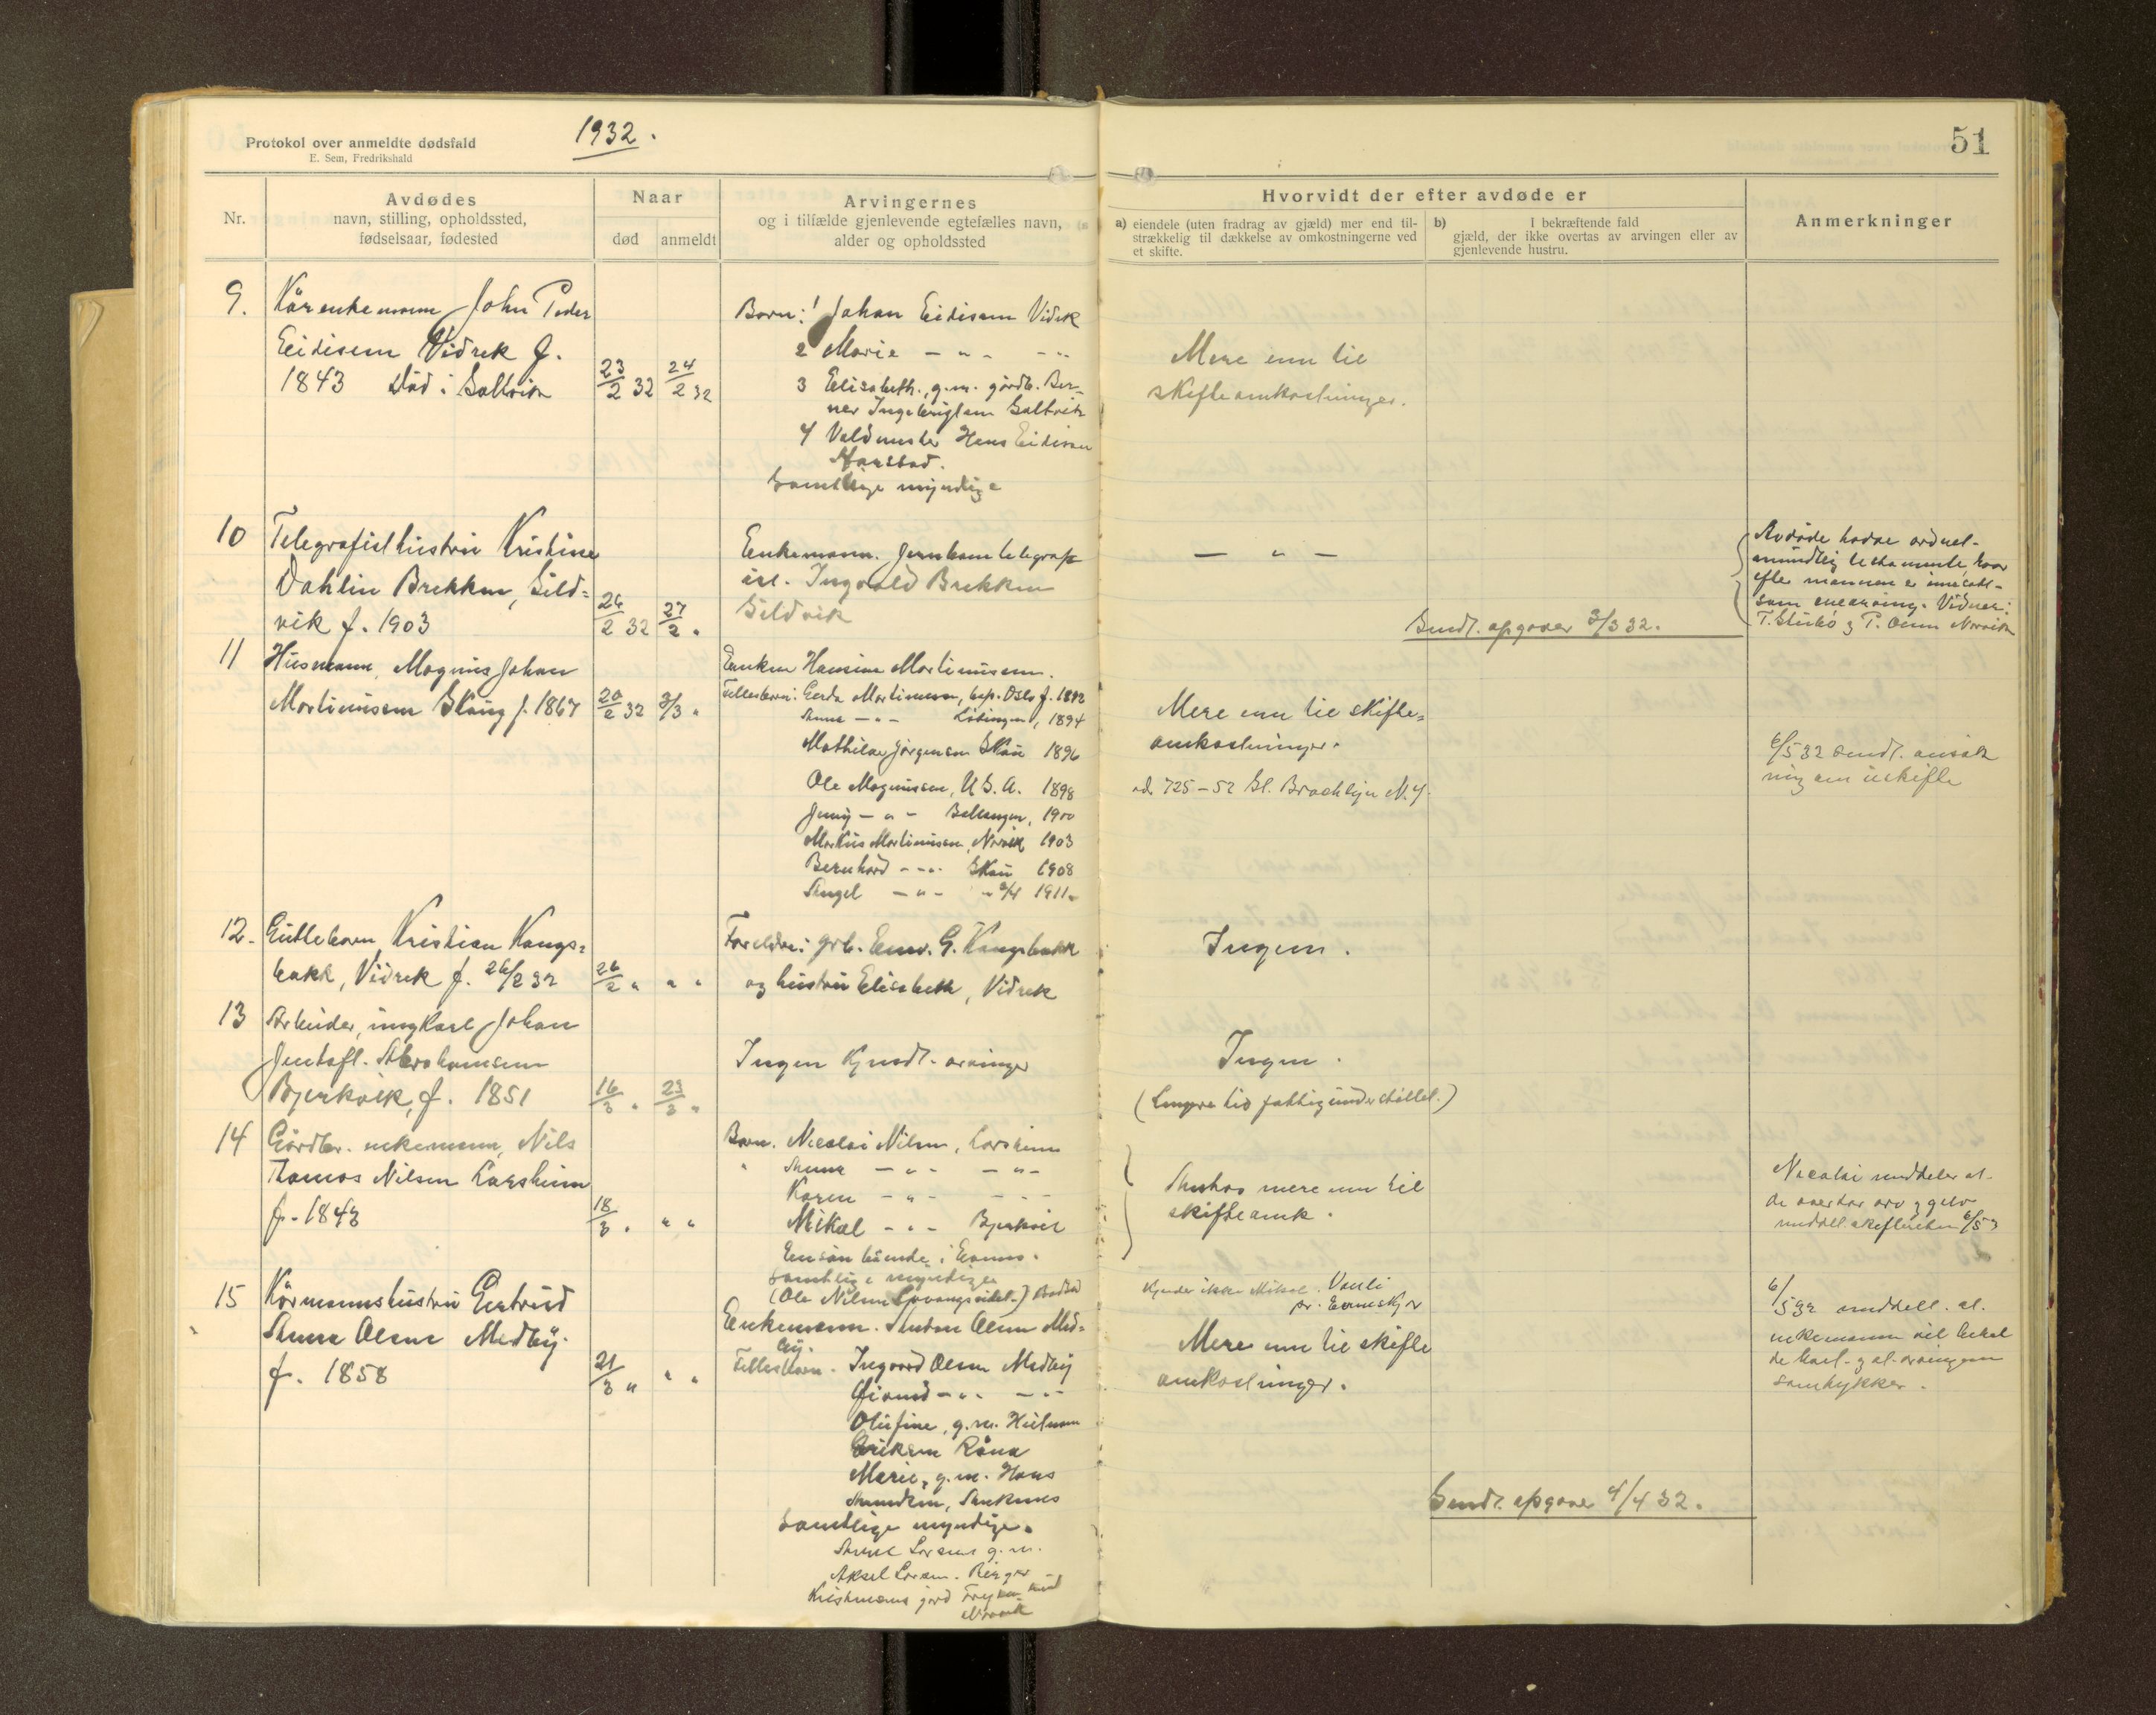 Protokol over anmeldte dødsfald
E. Sem, Fredrikshald
1932.
51
Nr.
Avdødes
navn, stilling, opholdssted,
fødselsaar, fødested
Naar
død
anmeldt
Arvingernes
og i tilfælde gjenlevende egtefælles navn,
alder og opholdssted
Hvorvidt der efter avdøde er
a) eiendele (uten fradrag av gjæld) mer end til-
strækkelig til dækkelse av omkostningerne ved
et skifte.
b) I bekræftende fald
gjæld, der ikke overtas av arvingen eller av
gjenlevende hustru.
Anmerkninger
9. Kårenkemann John Peder
Eidisen Vidrek f.
1843 Død i
23/2 32 24/2 32
Barn: 1 Johan Eidisen Vidrek
2 Marie — " — — " —
3 Elisabeth, g.m. gårdb.
4 Hans Eidisen
Harstad.
Samtlige myndige
Mere enn til
skifteomkostninger.
10 Telegrafisthustru Kristine
Dahlin Brekken, Sild=
vik f. 1903
26/2 32 27/2 "
Enkemann. Jernbanetelegraf=
ist. Ingvald Brekken
Sildvik
— " —
Sendt. opgaver 3/3 32.
Avdøde hadde ordnet
mundtlig testamente, hvor
efter mannen er innsatt
som enearving. Vidner:
P. Olsen Narvik
11 Husmann, Magnus Johan
Mortinussen Skaug f. 1867
20/2 32 3/3 "
Enken Hansine Mortinussen.
Fellesbarn: Gerda Mortinussen, Oslo f. 1892
Anna — " — Lødingen, 1894
Mathilde Jørgensen 1896
Ole Magnussen, U.S.A. 1898
Jenny — " — Ballangen, 1900
Markus Mortinussen, Narvik 1903
Bernhard — " — 1908
Angel — " — 1911
Mere enn til skifte=
omkostninger.
ad. 725 – 52 St. Brooklyn N.Y.
6/5 32 sendt. ansøk
ning om uskifte
12. Guttebarn Kristian Kongs=
bakk, Vidrek f. 26/2 32
26/2 " " "
Foreldre: grb. G. Kongsbakk
og hustru Elisabeth, Vidrek
Ingen.
13 Arbeider, ungkarl Johan
Abrahamsen
Bjerkvik, f. 1851
16/3 " 23/3 "
Ingen kjendt. arvinger
Ingen.
(Lengere tid fattigunderstøttet.)
14 Gårdbr. enkemann, Nils
Thomas Nilsen Larsheim
f. 1843
18/3 " " "
Barn. Nicolai Nilsen, Larsheim
" Anna — " — — " —
Karen — " — — " —
Mikal — " — Bjerkvik
En sønn boende i Evenes.
samtlige myndige
(Ole Nilsen
Anntas mere enn til
skifteomk.
Kjender ikke Mikal.
pr. Evenskjer
Nicolai meddeler at
de overtar arv og gjeld
meddelt skifteretten 6/5 3
15 Kårmannshustru Gertrud
Anna Olsen Medby.
f. 1858
21/3 " " "
Enkemann. Anton Olsen Med=
by.
Fellesbarn. Ingvard Olsen Medby
Øivind — " — — " —
Olufine, g.m.
Eriksen Råna
Marie, g.m. Hans
Amundsen, Ankenes
Samtlige myndige.
Anna Larsen g.m.
Aksel Larsen.
Mere enn til skifte
omkostninger.
6/5 32 meddelt. at
enkemannen vil
samtykker.
Sendt. opgaver 4/4 32.